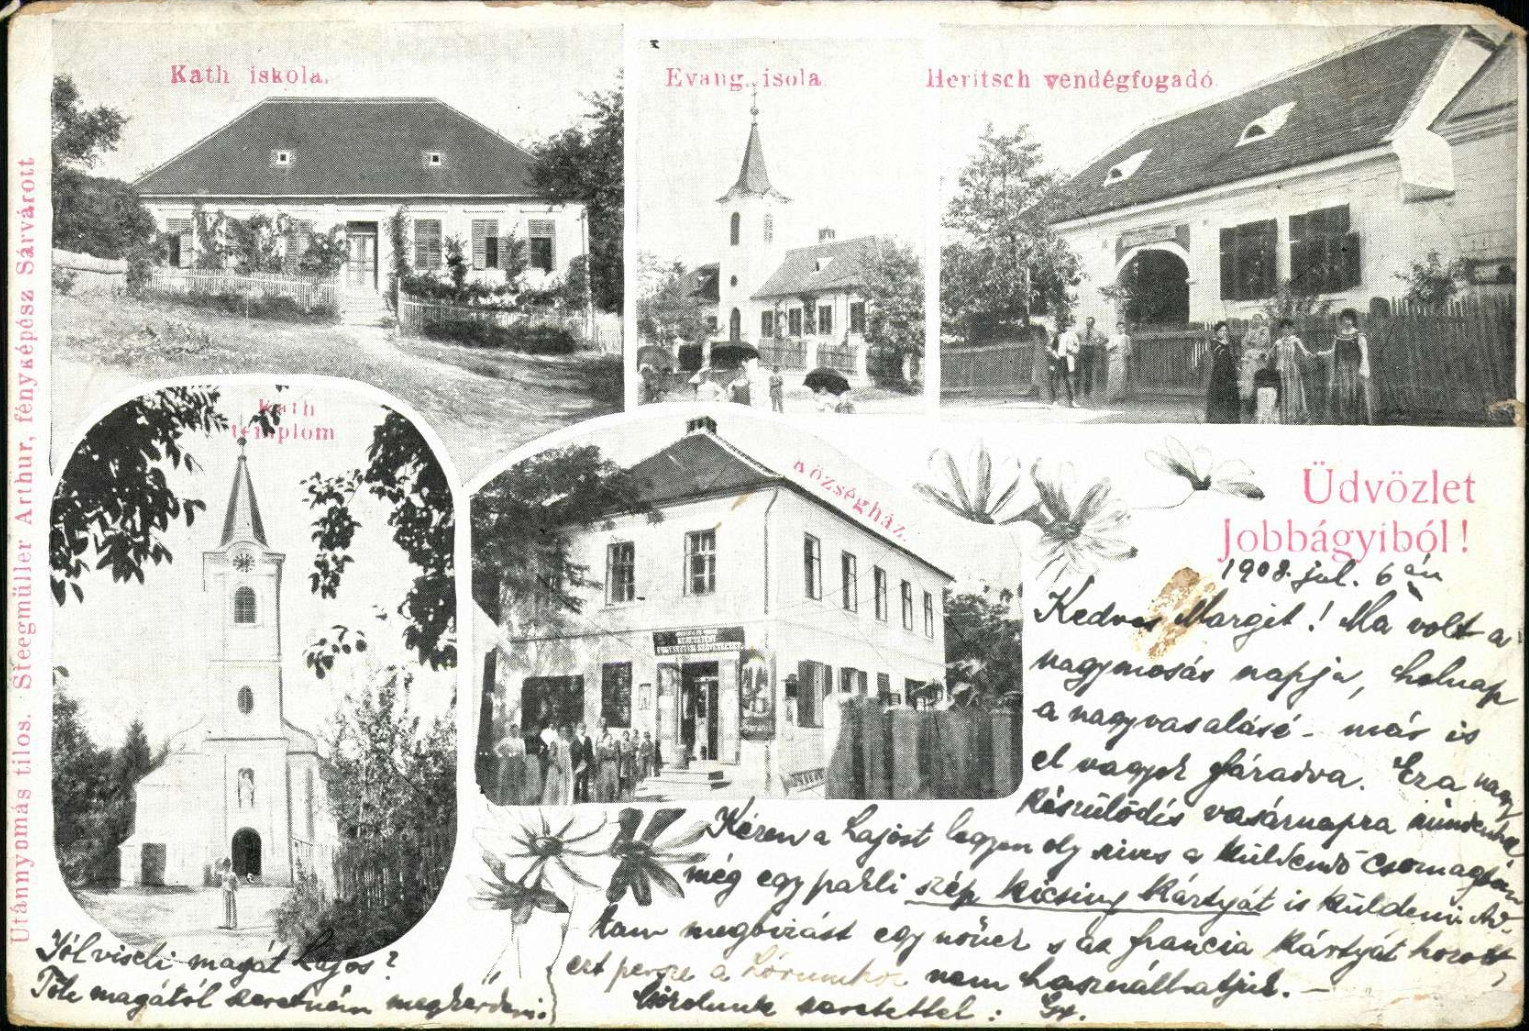 Kath iskola.
Evang. isola
Heritsch vendégfogadó
Utánnyomás tilos. Steegmüller Arthur, fényképész Sárvárott
Kath
templom
Községház.
Üdvözlet
Jobbágyiból!
1908. jul. 6án
Kedves Margit! Ma volt a
nagymosás napja, holnap
a nagyvasalásé - már is
el vagyok fáradva. Ez a nagy
készülődés vasárnapra
Kérem a Lajost legyen oly szives a küldendő csomagban
még egy pakli szép kicsiny kártyát is küldeni.
tam megbizást egy nőnek s az francia kártyát hozott,
ezt persze a nem használhatjuk. -
Csókolunk szeretettel:
Jól viseli magát Lajos?
Tőle magától szeretném megkérdezni.